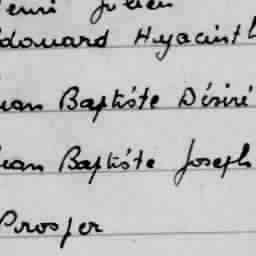 enri Julien
douard Hyacinth
ean Baptiste Désiré
ean Baptiste Joseph
Prosper